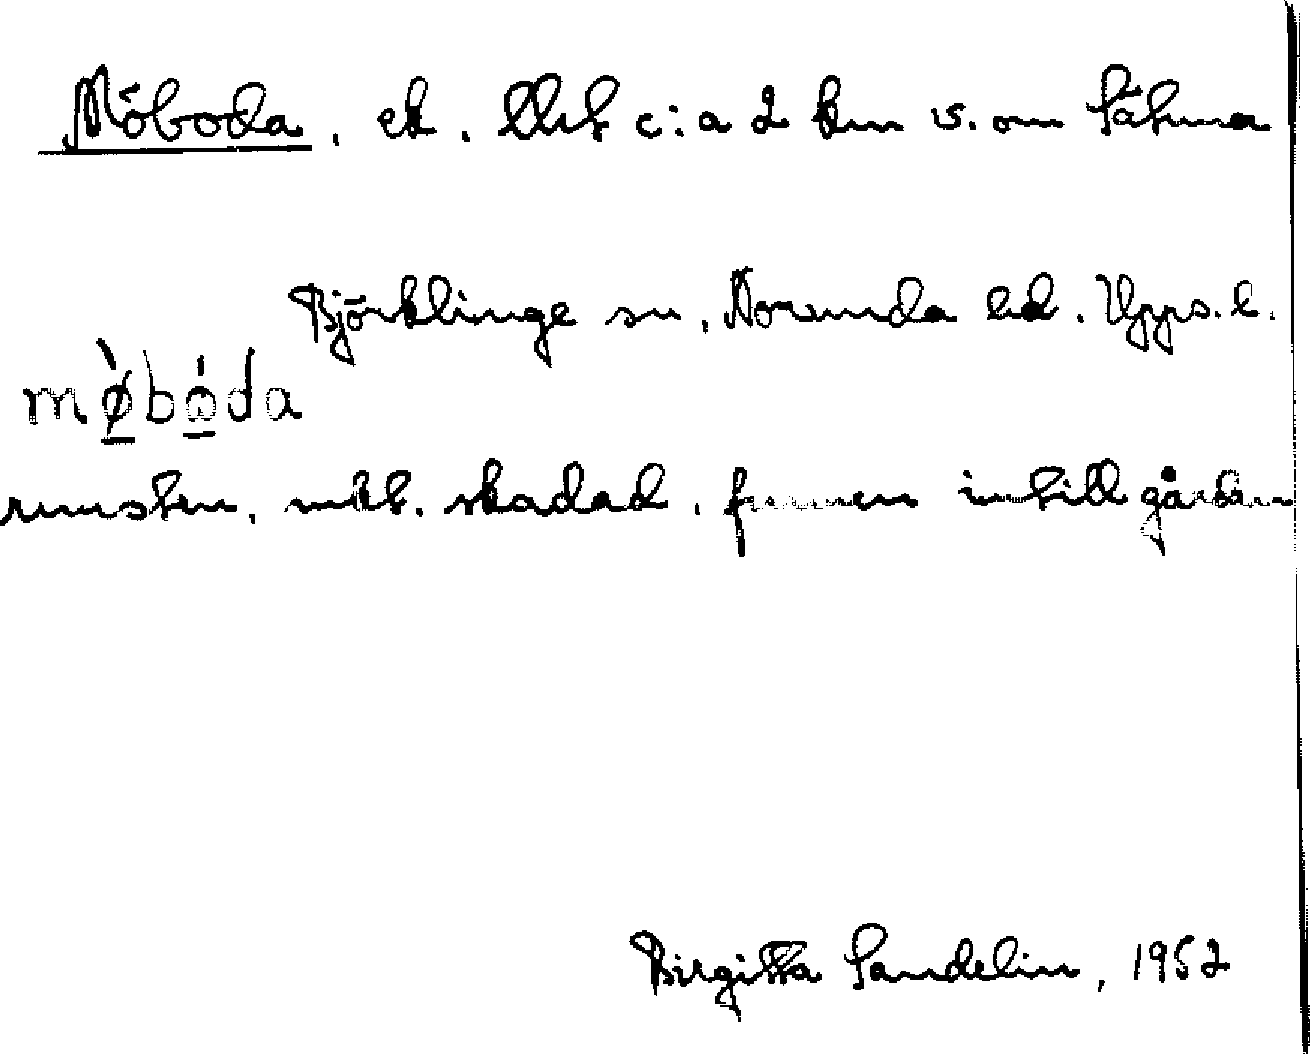 Möboda, ek. c:a 2 km v. om Sätuna
Björklinge sn, Norunda hd. Upps. l.
mø̱̀bo̱̍da
runsten, mkt. skadad, funnen intill gården
Birgitta Sandelin, 1952